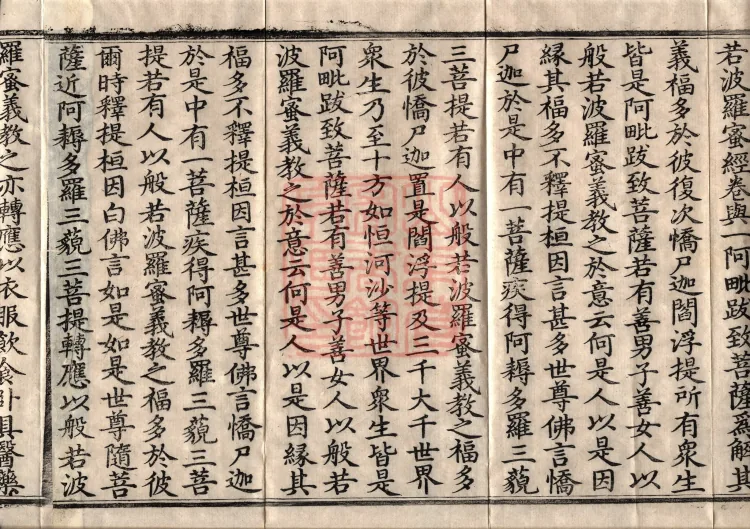 若波羅蜜經卷與一阿毗跋致菩薩爲解其
義福多於彼復次憍尸迦閻浮提所有衆生
皆是阿毗跋致菩薩若有善男子善女人以
般若波羅蜜義教之於意云何是人以是因
緣其福多不釋提桓因言甚多世尊佛言憍
尸迦於是中有一菩薩疾得阿耨多羅三藐
三菩提若有人以般若波羅蜜義教之福多
於彼憍尸迦置是閻浮提及三千大千世界
衆生乃至十方如恒河沙等世界衆生皆是
阿毗跋致菩薩若有善男子善女人以般若
波羅蜜義教之於意云何是人以是因緣其
福多不釋提桓因言甚多世尊佛言憍尸迦
於是中有一菩薩疾得阿耨多羅三藐三菩
提若有人以般若波羅蜜義教之福多於彼
爾時釋提桓因白佛言如是如是世尊隨菩
薩近阿耨多羅三藐三菩提轉應以般若波
羅蜜義教之亦轉應以衣服飲食卧具醫藥